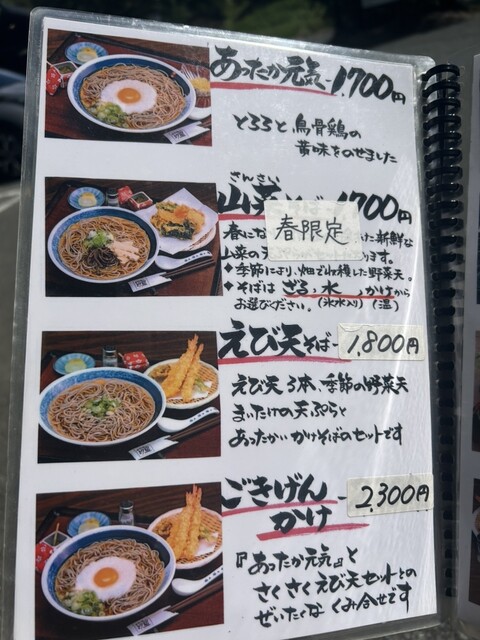 あったか元気 1,700円
とろろと烏骨鶏の
黄味をのせました
さんさい
山菜そば 1700円
春限定
春にな した新鮮な
山菜の天 ます。
◆季節により、畑で収穫した野菜天。
◆そばは ざる、水、かけから
お選びください。(氷水入り)(温)
えび天そば 1,800円
えび天3本、季節の野菜天
まいたけの天ぷらと
あったかいかけそばのセットです
ごきげん 2,300円
かけ
『あったか元気』と
さくさくえび天セットとの
ぜいたくな くみ合せです